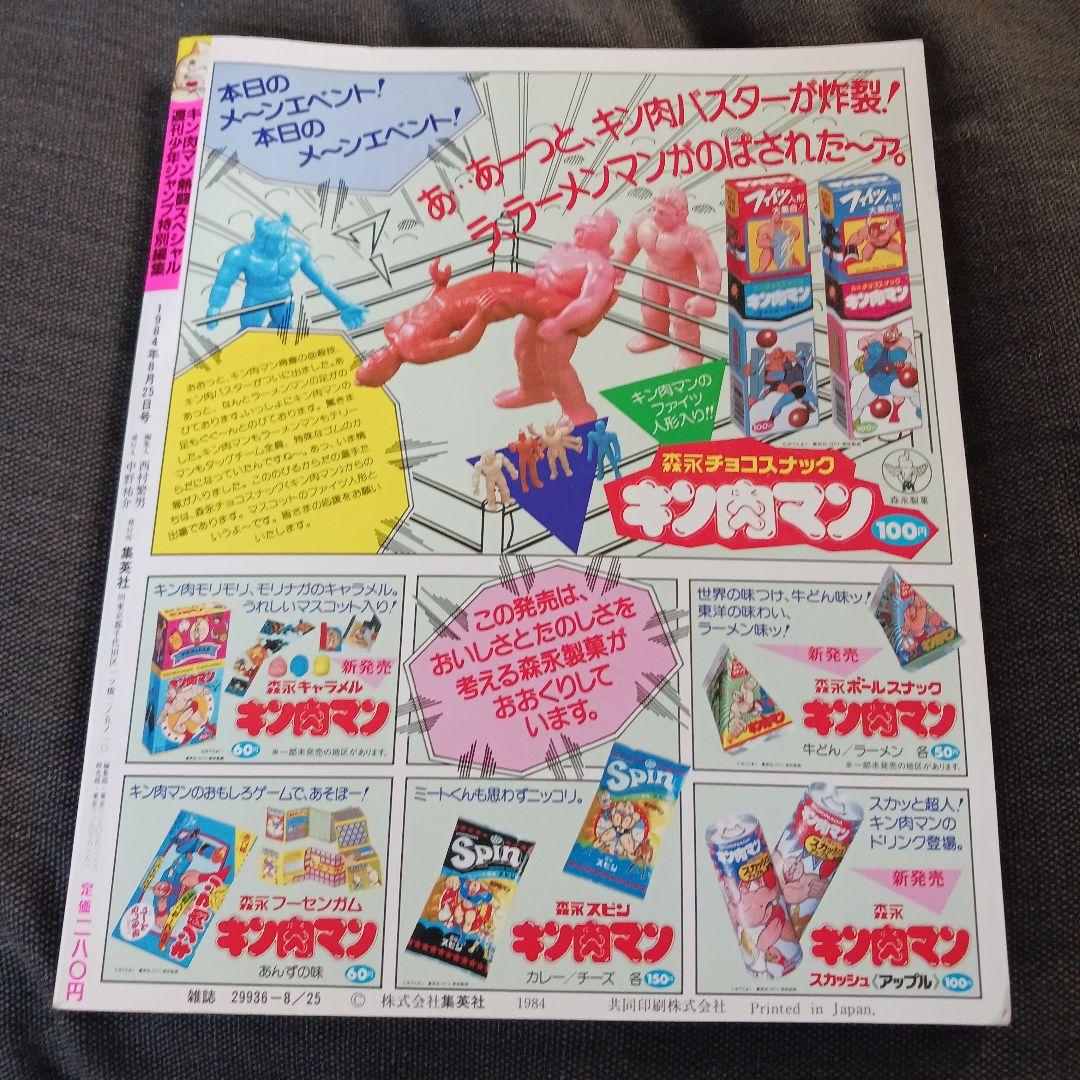 本日の
メ〜ンエベント!
本日の
メ〜ンエベント!
あ…あーっと、キン肉バスターが炸裂!
ラ・ラーメンマンがのばされた〜ァ。
おおっと、キン肉マン得意の必殺技、
キン肉バスターがついに出ました。あ
あっと、なんとラーメンマンの足がの
びてあります。いっしょにキン肉マンの
足もぐぐーんとのびてあります。驚きま
した。キン肉マンもラーメンマンもテリー
マンもタッグチーム全員、特殊なゴムのか
らだになっていたんですねー。あっ、いま情
報が入りました。こののびるからだの選手た
ちは、森永チョコスナック〈キン肉マン〉からの
出場であります。マスコットのファイツ人形と
いうよ〜です。皆さまの応援をお願い
いたします。
ファイツ人形
大集合!!
キン肉マン
100円
ファイツ人形
大集合!!
キン肉マン
100円
キン肉マンの
ファイツ
人形入り!!
森永チョコスナック
キン肉マン
100円
森永製菓
キン肉モリモリ、モリナガのキャラメル。
うれしいマスコット入り!
新発売
森永キャラメル
キン肉マン
60円
※一部未発売の地区があります。
この発売は、
おいしさとたのしさを
考える森永製菓が
おおくりして
います。
世界の味つけ、牛どん味ッ!
東洋の味わい、
ラーメン味ッ!
新発売
森永ボールスナック
キン肉マン
牛どん/ラーメン 各50円
※一部未発売の地区があります。
キン肉マンのおもしろゲームで、あそぼー!
森永フーセンガム
キン肉マン
あんずの味
60円
ミートくんも思わずニッコリ。
Spin
スピン
Spin
スピン
森永スピン
キン肉マン
カレー/チーズ 各150円
スカッと超人!
キン肉マンの
ドリンク登場。
新発売
キン肉マン
キン肉マン
森永
キン肉マン
スカッシュ〈アップル〉100円
雑誌 29936-8/25 © 株式会社集英社 1984 共同印刷株式会社 Printed in Japan.
キン肉マン熱闘スペシャル
週刊少年ジャンプ特別編集
1984年8月25日号
編集人 西村繁男
発行人 中野祐介
発行所 集英社
定価二八〇円